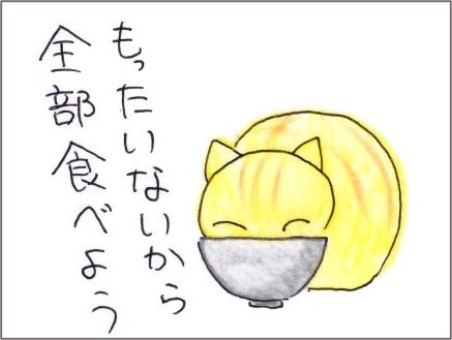 もったいないから
全部食べよう